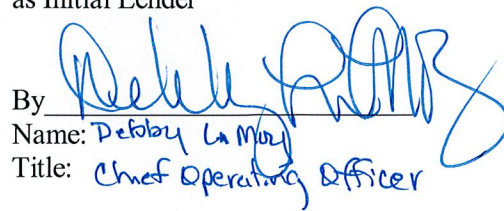 as Initial Lender
By
Name: Debby La Moy
Title: Chief Operating Officer